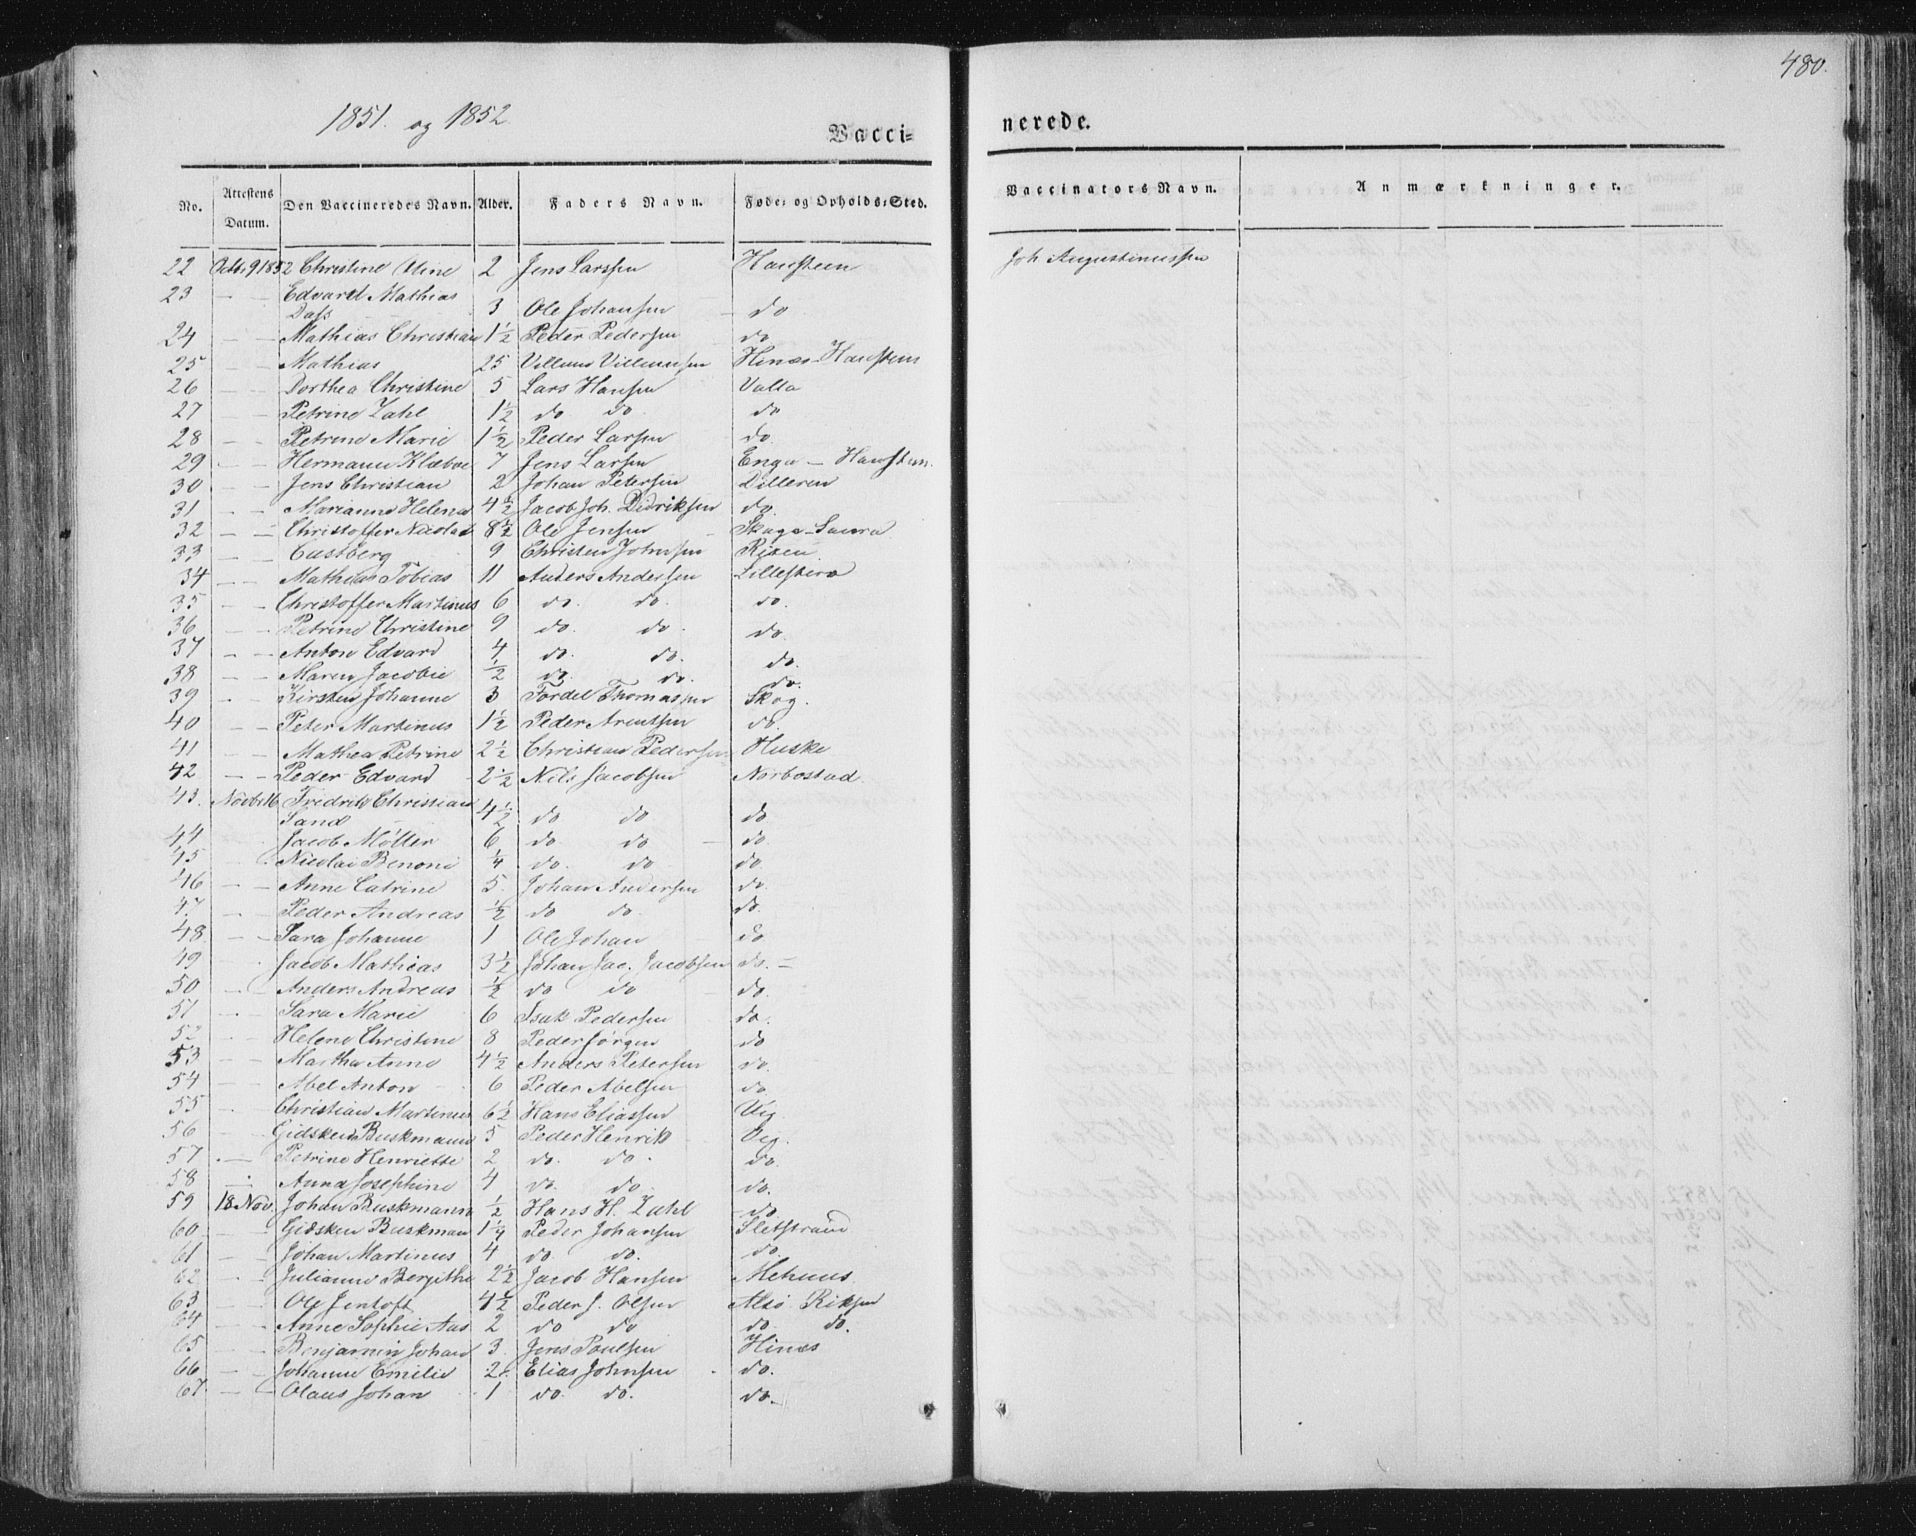 480.
1851. og 1852.
Vacci= nerede.
No. Attestens Datum. Den Vaccineredes Navn. Alder. Faders Navn. Føde= og Opholds=Sted. Vaccinators Navn. Anmærkninger.
22 Octb. 9 1852 Christine Oline 2 Jens Larssen Hansteen Joh Augustinussen
23 — — Edvard Mathias
Dass 3 Ole Johansen do
24 — — Mathias Christian 1½ Peder Pedersen do
25 — — Mathias 25 Villum Villumsen Hinæs-Hansteen
26 — — Dorthea Christine 5 Lars Hansen Valla
27 — — Petrine Zahl 1½ do do do
28 — — Petrine Marie 1½ Peder Larsen do.
29 — — Hermann Klæboe 7 Jens Larsen Enga — Hansteen
30 — — Jens Christian 2 Johan Petersen Dilleren
31 — — Marianne Helena 4½ Jacob Joh. Didriksen do.
32 — — Christoffer Nicolai 8½ Ole Jensen Skaga-Saura
33 — — Castberg 9 Christen Johnsen Risen
34 — — Mathias Tobias 11 Anders Andersen Lillesterø
35 — — Christoffer Martinus 6 do. do. do.
36 — — Petrine Christine 9 do. do. do.
37 — — Anton Edvard 4 do. do. do.
38 — — Maren Jacobie ½ do. do. do.
39 — — Kirsten Johanne 3 Tordel Thomassen Skog.
40 — — Peter Martinus 1½ Peder Arentsen do
41 — — Mathea Petrine 2½ Christian Pedersen Huske
42 — — Peder Edvard 2½ Nils Jacobsen Norbostad
43. Novb. 16 Fredrik Christian
Sand 4½ do do do
44 — Jacob Möller 6 do. do — do
45 — Nicolai Benoni ¼ do. do do.
46 — — Anne Catrine 5. Johan Andersen do.
47. — — Peder Andreas ½ do do. do.
48 — — Sara Johanne 1 Ole Johan do
49 — Jacob Mathias 3½ Johan Jac. Jacobsen do. —
50 — Anders Andreas ½ do do do.
51 — Sara Marie 6 Isak Pedersen do.
52 — Helene Christine 8 Peder Jörgen do
53 — — Martha Anne 4½ Anders Petersen do.
54 — — Abel Anton 6 Peder Abelsen do
55 — Christian Martinus 6½ Hans Eliassen Vig
56 — Gidsken Buskmann 5 Peder Henrik Vig.
57 — Petrine Henriette 2 do. do. do.
58 — Anna Josephine 4 do. do. do.
59 18 Nov. Johan Buskmann ½ Hans H. Zahl do
60 — — Gidsken Buskman 1¼ Peder Johansen Sletstrand
61 — — Johan Martinus 4 do. do. do.
62 — — Julianne Bergithe 2½ Jacob Hansen Mehuus
63 — — Ole Jentoft 4½ Peder J. Olsen
64 — — Anne Sophie Aas 2 do do do do.
65 — — Benjamin Johan 3. Jens Poulsen Hinæs
66 — — Johanne Emilie 2. Elias Johnsen do.
67 — — Olaus Johan 1 do. do. do.